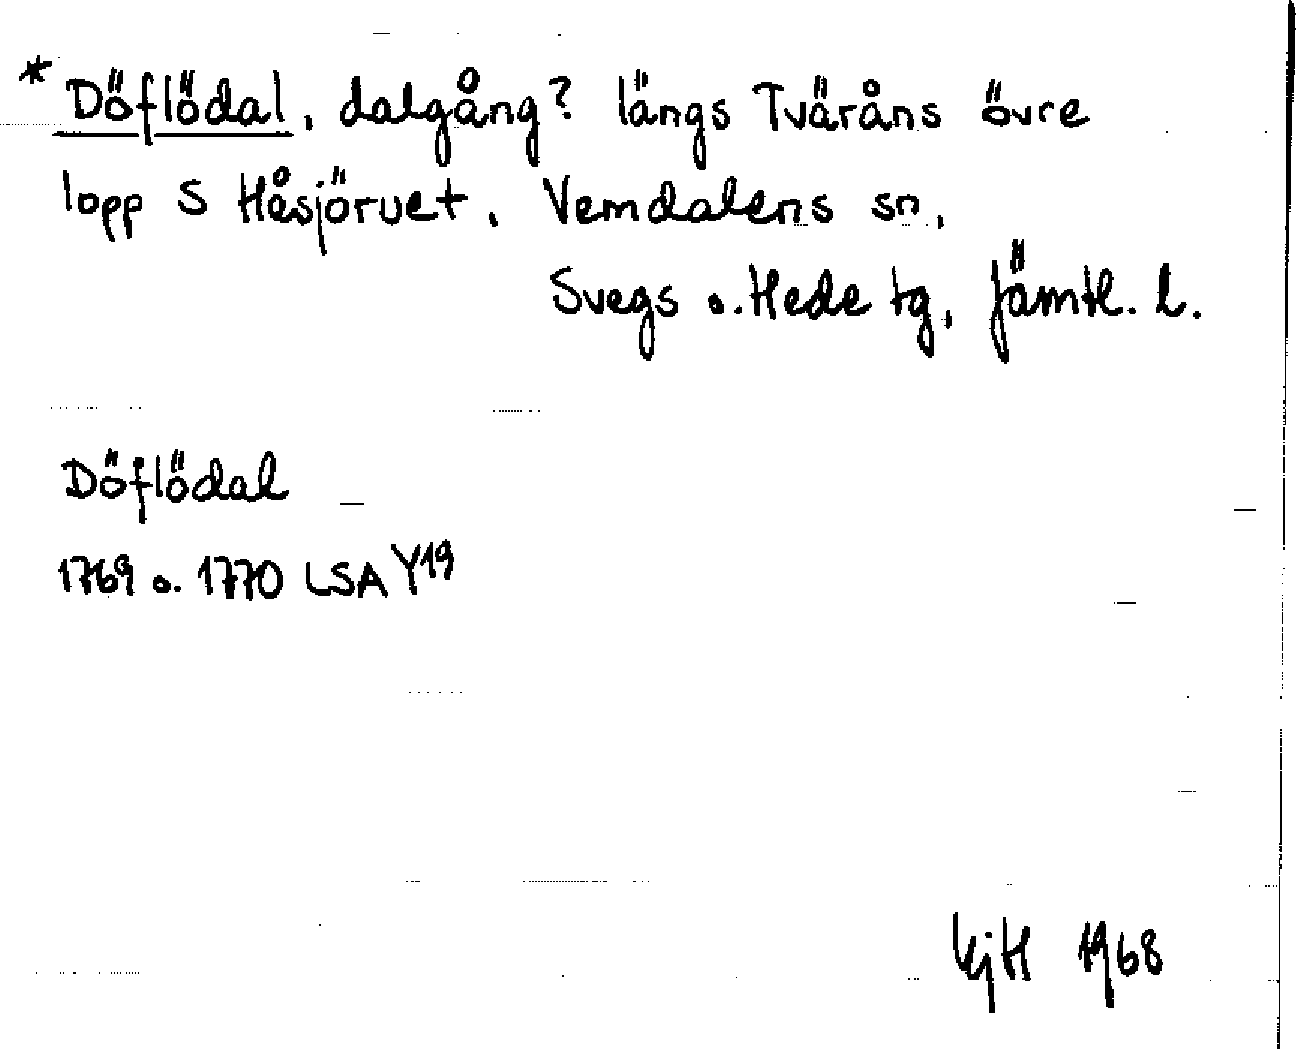 * Döflödal, dalgång? längs Tväråns övre
lopp S Håsjörvet, Vemdalens sn,
Svegs o. Hede tg, Jämtl. l.
Döflödal
1769 o. 1770 LSA Y19
KjH 1968